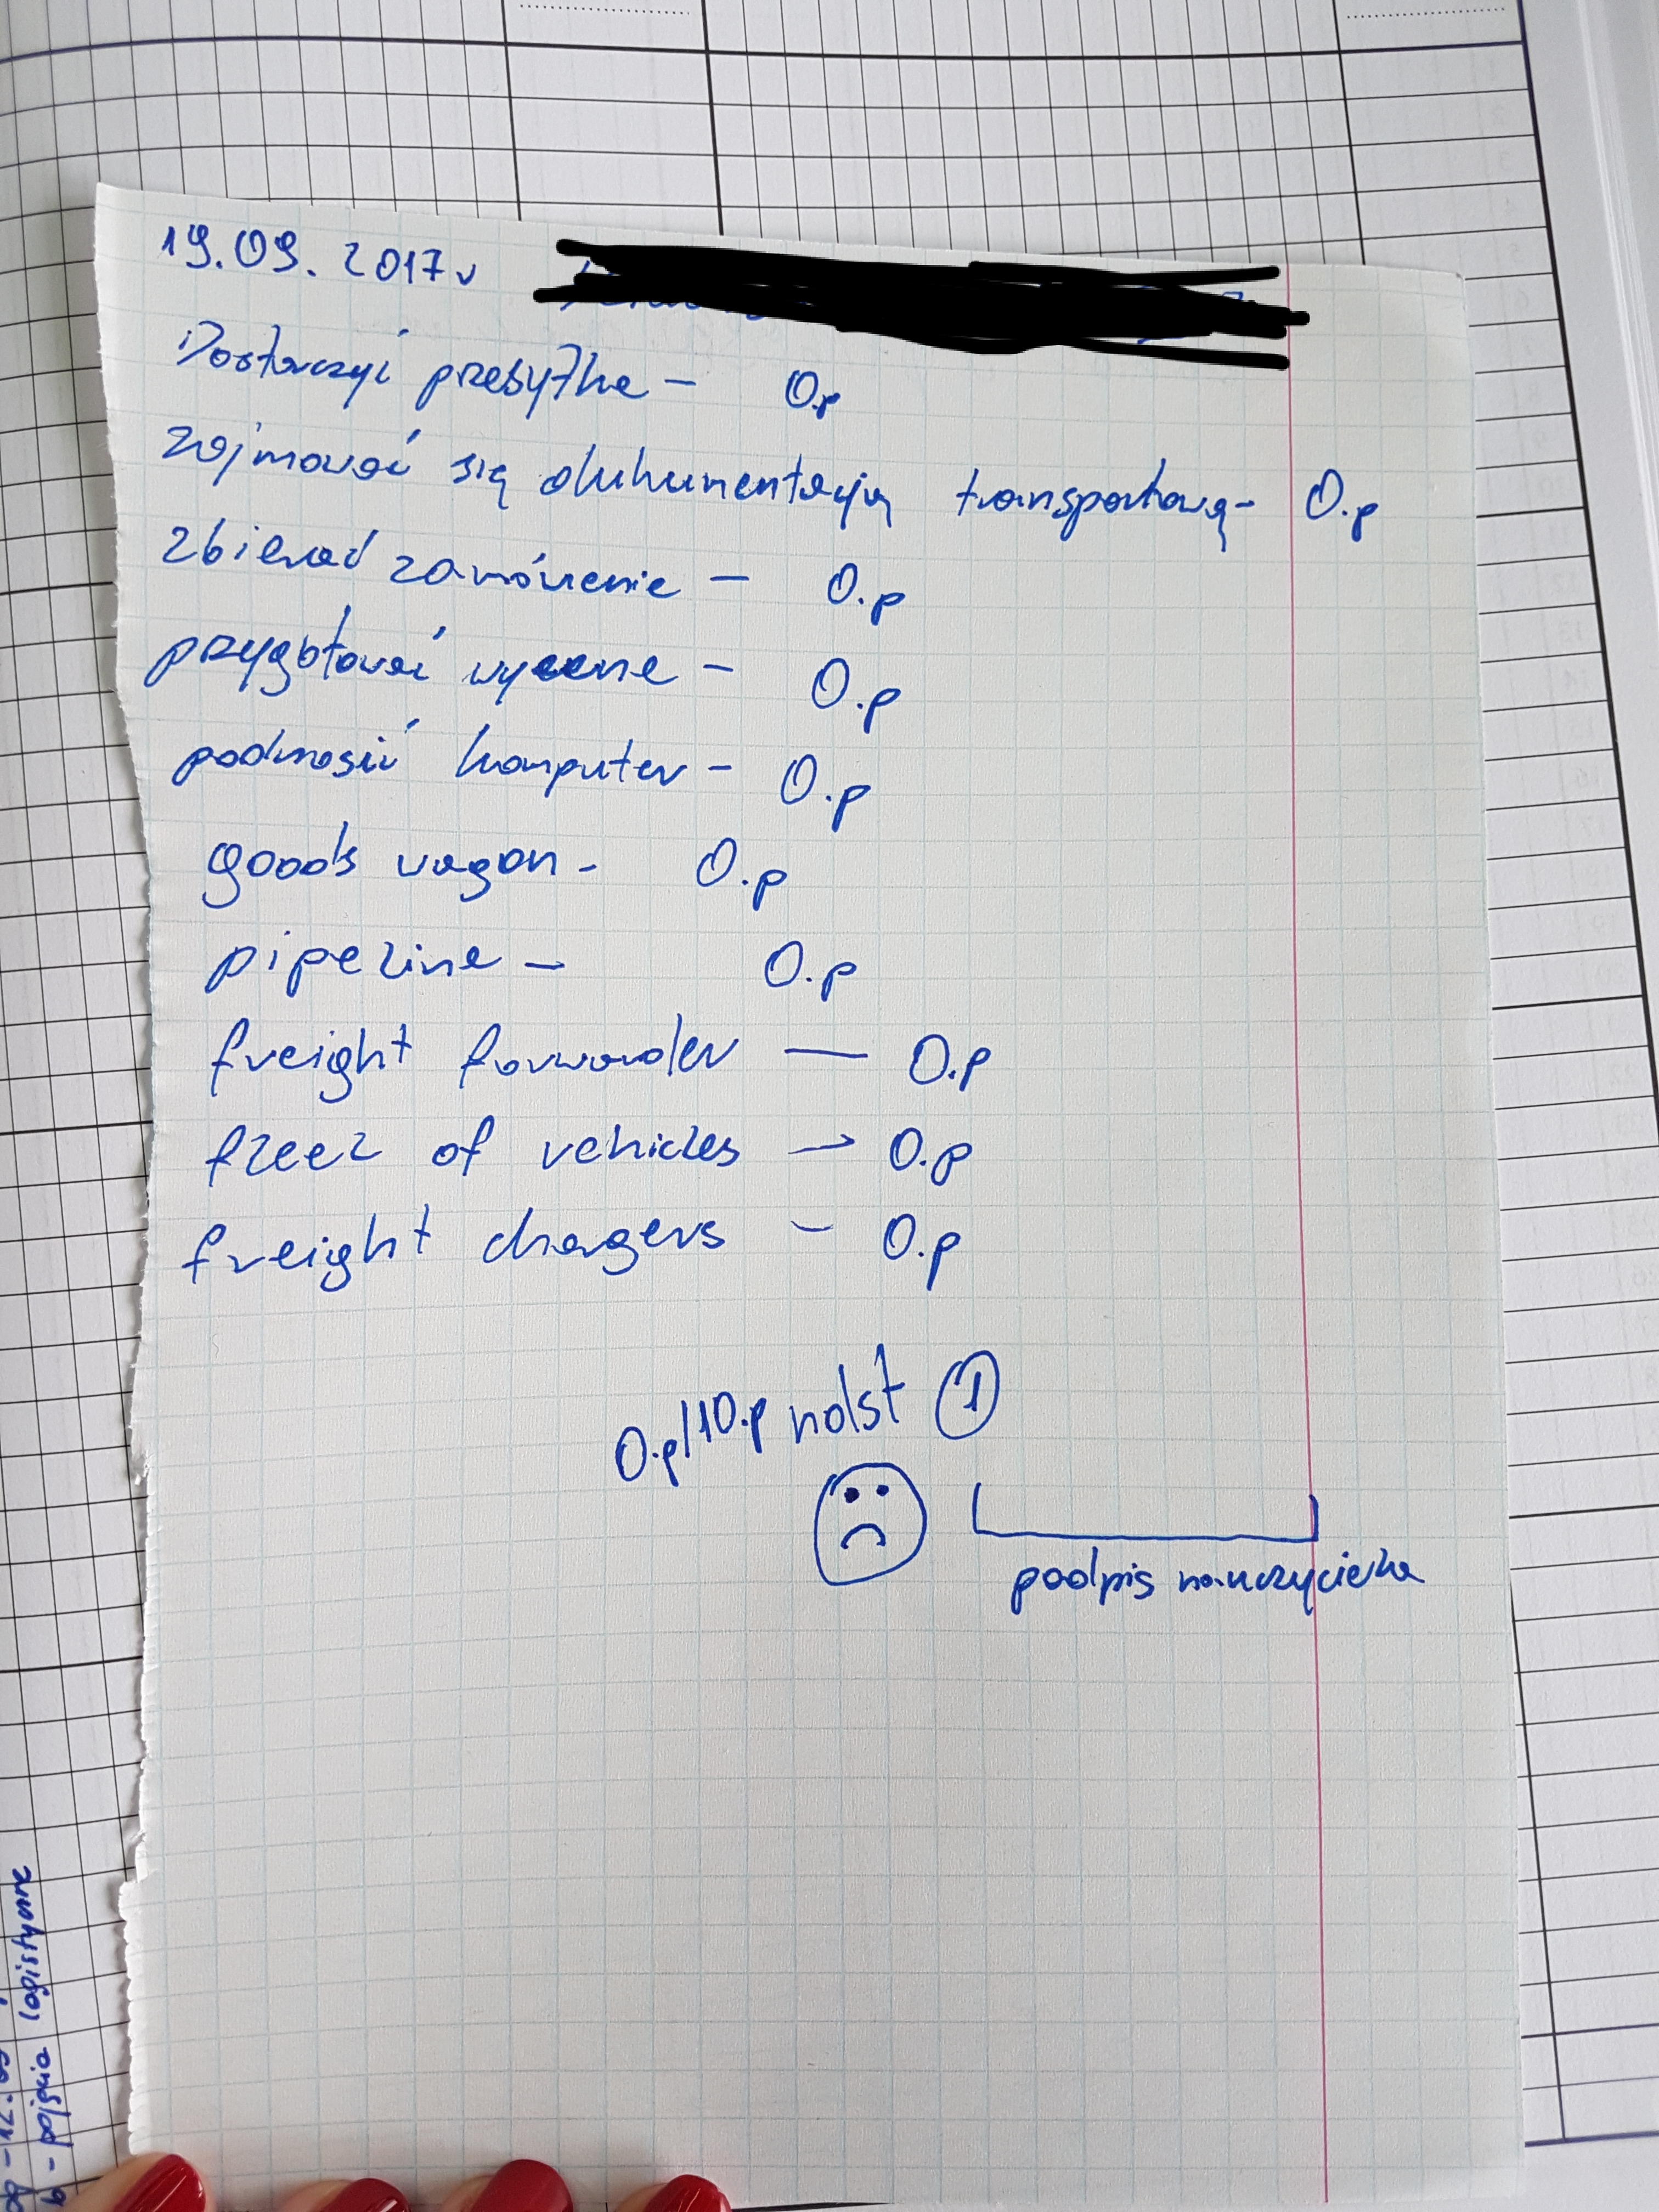 19.09.2017r
Dostarczyć przesyłke - 0.p
zajmować się dukumentacją transportową - 0.p
zbierać zamówienie - 0.p
przygotować wycene - 0.p
podnosić komputer - 0.p
goods vagon - 0.p
pipeline - 0.p
freight forwarder — 0.p
fleet of vehicles - 0.p
freight chargers - 0.p
0.p/10.p ndst 1
podpis nauczycielka
- pojęcia logistyczne